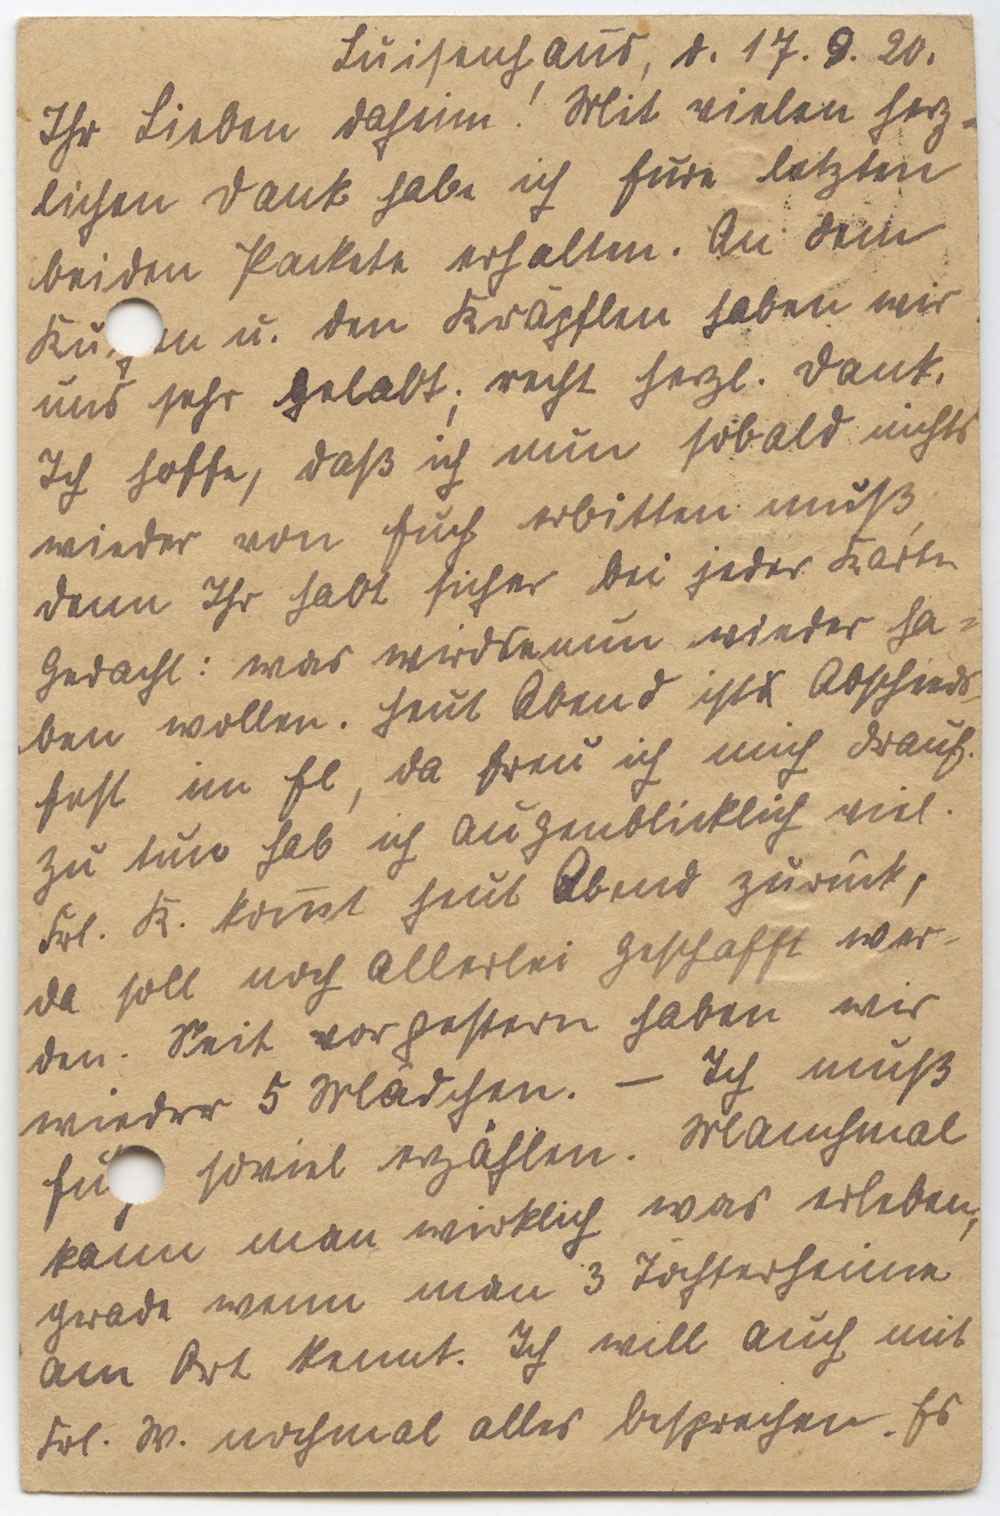 Luisenhaus, d. 17. 9. 20.
Ihr Lieben daheim! Mit vielen herz-
lichen Dank habe ich Eure letzten
beiden Packete erhalten. An dem
Kuchen u. den Kräpflen haben wir
uns sehr gelabt; recht herzl. Dank.
Ich hoffe, daß ich nun sobald nichts
wieder von Euch erbitten muß,
denn Ihr habt sicher bei jeder Karte
gedacht: was wird se nun wieder ha=
ben wollen. Heut Abend ists Abschieds-
fest im El, da freu ich mich drauf.
Zu tun hab ich augenblicklich viel.
Frl. K. kom̄t heut Abend zurück,
da soll noch allerlei geschafft wer-
den. Seit vorgestern haben wir
wieder 5 Mädchen. – Ich muß
Euch soviel erzählen. Manchmal
kann man wirklich was erleben,
grade wenn man 3 Töchterheime
am Ort kennt. Ich will auch mit
Frl. W. nochmal alles besprechen. Es